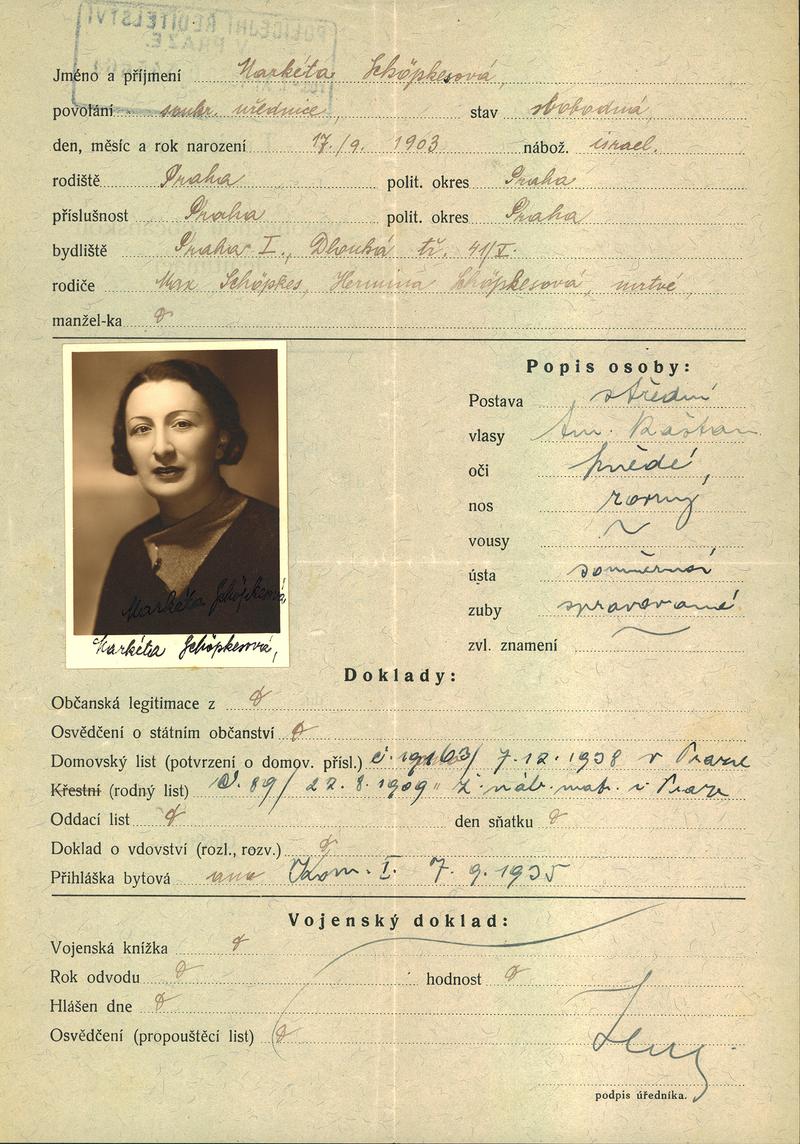 POLICEJNÍ ŘEDITELSTVÍ
V PRAZE.
Jméno a příjmení Markéta Schöpkesová,
povolání soukr. úřednice, stav svobodná,
den, měsíc a rok narození 17./9. 1903 nábož. israel.
rodiště Praha polit. okres Praha
příslušnost Praha polit. okres Praha
bydliště Praha I., Dlouhá tř. 41/V.
rodiče Max Schöpkes, Hermina Schöpkesová, mrtvé,
manžel-ka
Popis osoby:
Postava střední
vlasy tm. kaštan
oči hnědé,
nos rovný
vousy
ústa souměrná
zuby spravované
zvl. znamení
Markéta Schöpkesová
Markéta Schöpkesová,
Doklady:
Občanská legitimace z
Osvědčení o státním občanství
Domovský list (potvrzení o domov. přísl.) 7.12.1938 v Praze
Křestní (rodný list) č. 89/ 22.8.1909 ž. náb. mat. v Praze
Oddací list den sňatku
Doklad o vdovství (rozl., rozv.)
Přihláška bytová ano Kom. I. 7.9.1935
Vojenský doklad:
Vojenská knížka
Rok odvodu hodnost
Hlášen dne
Osvědčení (propouštěcí list)
podpis úředníka.